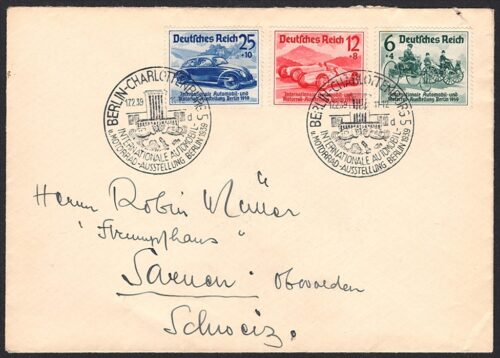 Deutsches Reich
25
+10
Internationale Automobil- und
Motorrad-Ausstellung Berlin 1939
Deutsches Reich
12
+8
Internationale Automobil- und
Motorrad-Ausstellung Berlin 1939
Deutsches Reich
6
+4
Internationale Automobil- und
Motorrad-Ausstellung Berlin 1939
BERLIN-CHARLOTTENBURG 5
17.2.39
d
INTERNATIONALE AUTOMOBIL-
u. MOTORRAD-AUSSTELLUNG BERLIN 1939
BERLIN-CHARLOTTENBURG 5
17.2.39 11-12
d
INTERNATIONALE AUTOMOBIL-
u. MOTORRAD-AUSSTELLUNG BERLIN 1939
Herrn Robin Müller
"Strumpfhaus"
Sarnen: Obwalden
Schweiz.